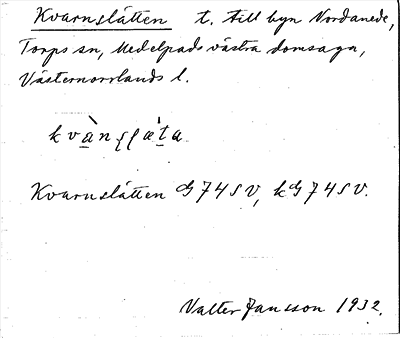 Kvarnslåtten t. till byn Nordanede,
Torps sn, Medelpads västra domsaga,
Västernorrlands l.
Kvarnslåtten G74SV, kG74SV.
Valter Jansson 1932.